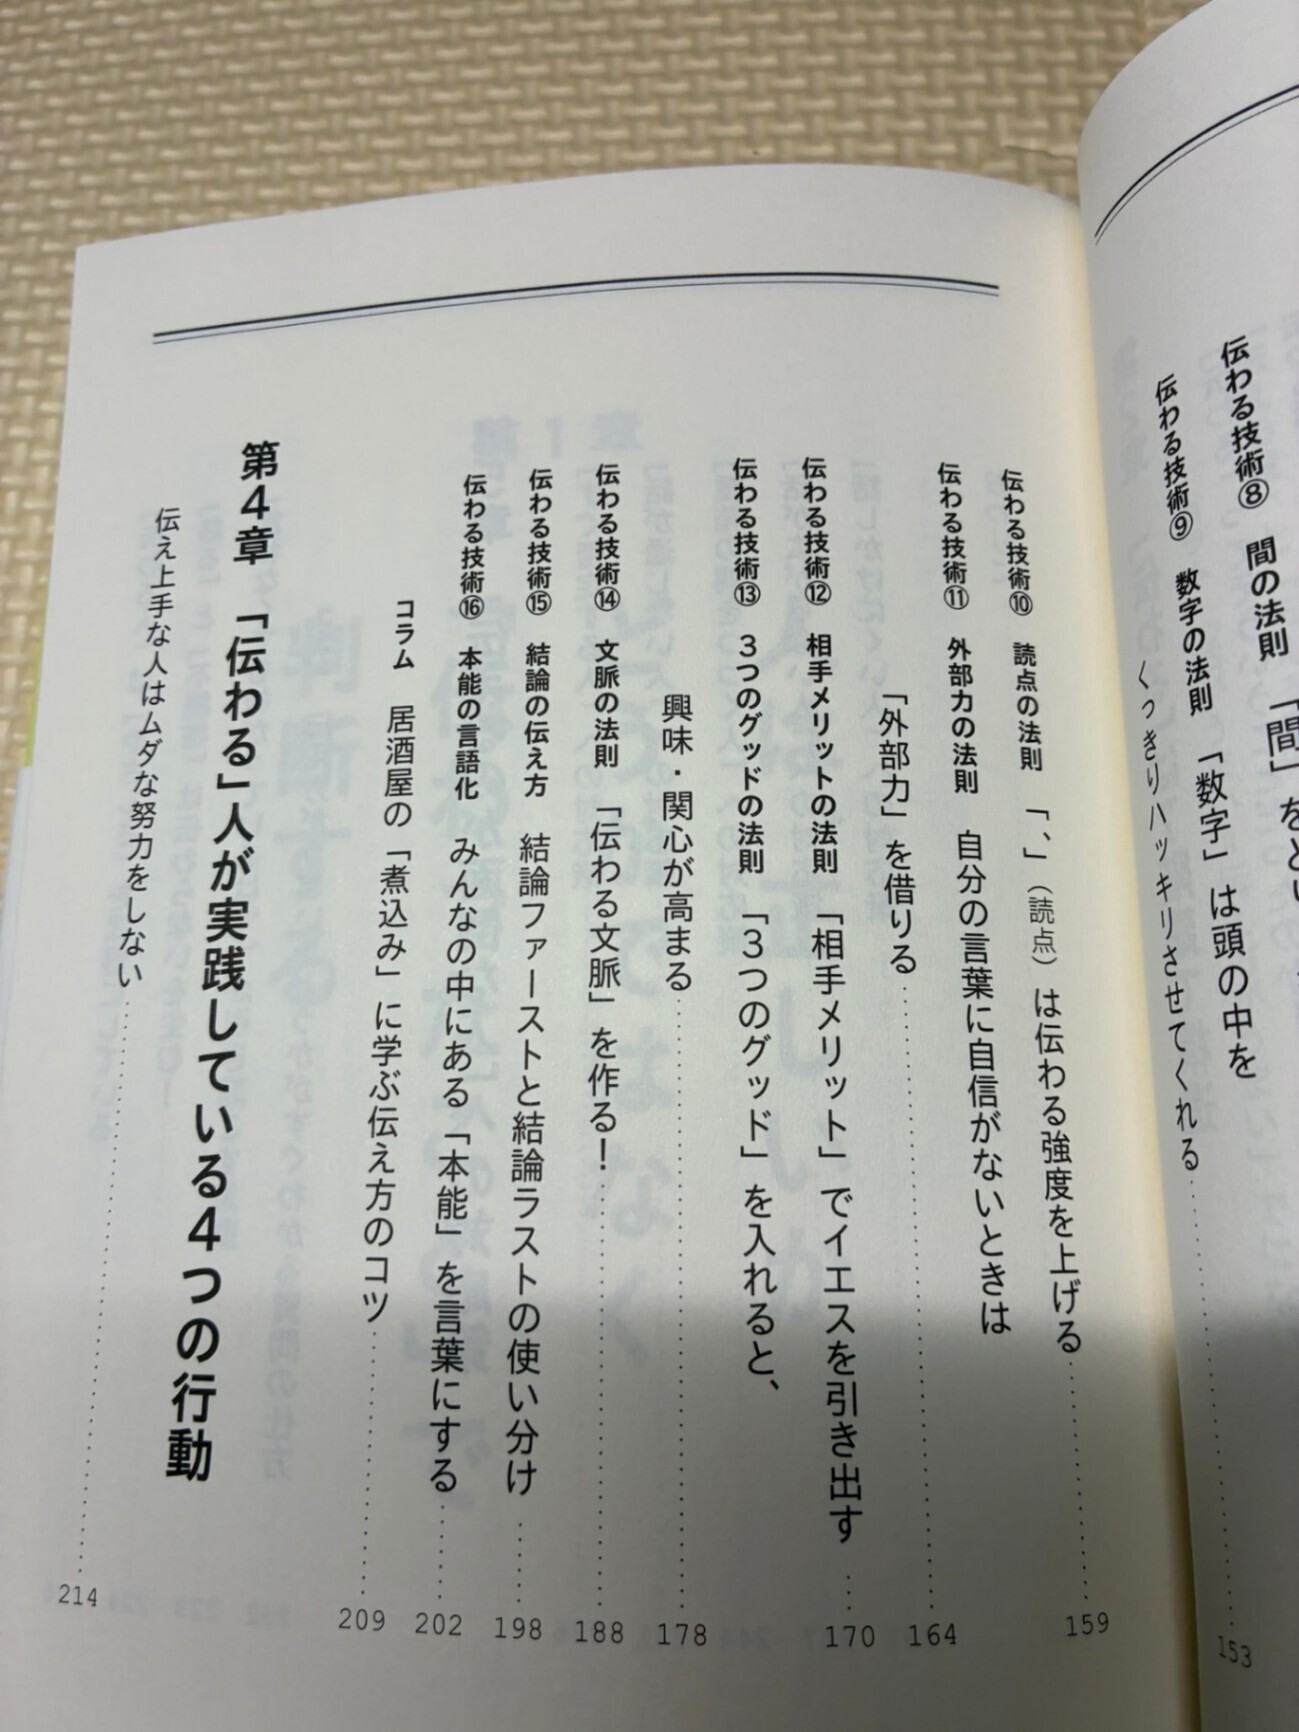 伝わる技術⑧ 間の法則 「間」を
伝わる技術⑨ 数字の法則 「数字」は頭の中を
くっきりハッキリさせてくれる 153
伝わる技術⑩ 読点の法則 「、」（読点）は伝わる強度を上げる 159
伝わる技術⑪ 外部力の法則 自分の言葉に自信がないときは
「外部力」を借りる 164
伝わる技術⑫ 相手メリットの法則 「相手メリット」でイエスを引き出す 170
伝わる技術⑬ 3つのグッドの法則 「3つのグッド」を入れると、
興味・関心が高まる 178
伝わる技術⑭ 文脈の法則 「伝わる文脈」を作る！ 188
伝わる技術⑮ 結論の伝え方 結論ファーストと結論ラストの使い分け 198
伝わる技術⑯ 本能の言語化 みんなの中にある「本能」を言葉にする 202
コラム 居酒屋の「煮込み」に学ぶ伝え方のコツ 209
第4章 「伝わる」人が実践している4つの行動
伝え上手な人はムダな努力をしない 214